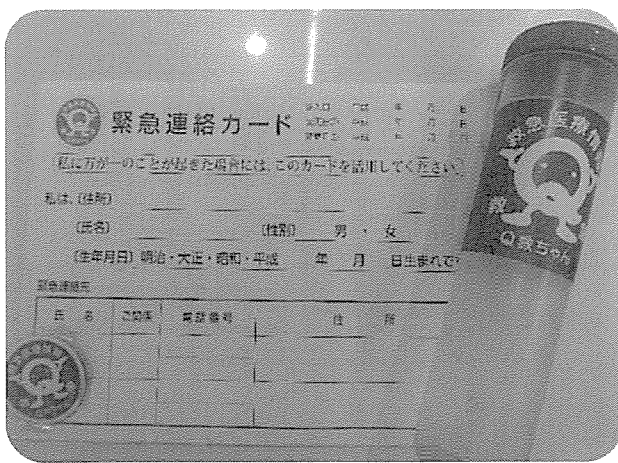 緊急連絡カード
年 月 日
年 月 日
年 月 日
私に万が一のことが起きた場合には、このカードを活用してください。
私は、〔住所〕
〔氏名〕 〔性別〕 男 ・ 女
〔生年月日〕 明治・大正・昭和・平成 年 月 日生まれで
緊急連絡先
氏 名 ご関係 電話番号 住 所
救急医療情
救
Q救ちゃん